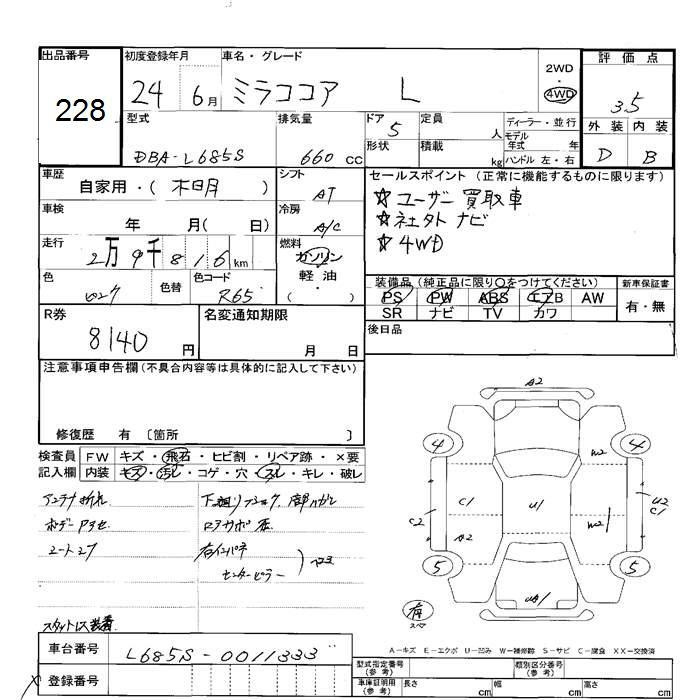 出品番号
228
初度登録年月
24 6月
車名・グレード
ミラココア L
2WD
・
4WD
評価点
3.5
外装 内装
D B
型式
DBA-L685S
排気量
660 CC
ドア 5
定員 人
ディーラー・並行
モデル
年式 年
ハンドル 左・右
形状
積載 kg
車歴
自家用・( )
シフト
AT
セールスポイント (正常に機能するものに限ります)
☆ユーザー買取車
☆社外ナビ
☆4WD
車検
年 月( 日)
冷房
A/C
走行
2万9千816km
燃料
ガソリン
軽油
( )
色
色替
色コード
R65
装備品 (純正品に限り○をつけてください)
PS PW ABS エアB AW
SR ナビ TV カワ
新車保証書
有・無
R券
8140 円
名変通知期限
月 日
後日品
注意事項申告欄 (不具合内容等は具体的に記入して下さい)
修復歴 有 〔箇所 〕
検査員
記入欄
FW キズ・飛石・ヒビ割・リペア跡・×要
内装 キズ・汚レ・コゲ・穴・スレ・キレ・破レ
アンテナ折れ
ボデー
スタットレス装着
A2
4
4
W2
C1
C2
U1
U2
C1
A2
W2
5
5
UA1
有
スペア
A-キズ E-エクボ U-凹み W-補修跡 S-サビ C-腐食 XX-交換済
車台番号 L685S-0011333
登録番号
型式指定番号
(参考)
類別区分番号
(参考)
車庫証明用
(参考)
長さ cm 幅 cm 高さ cm